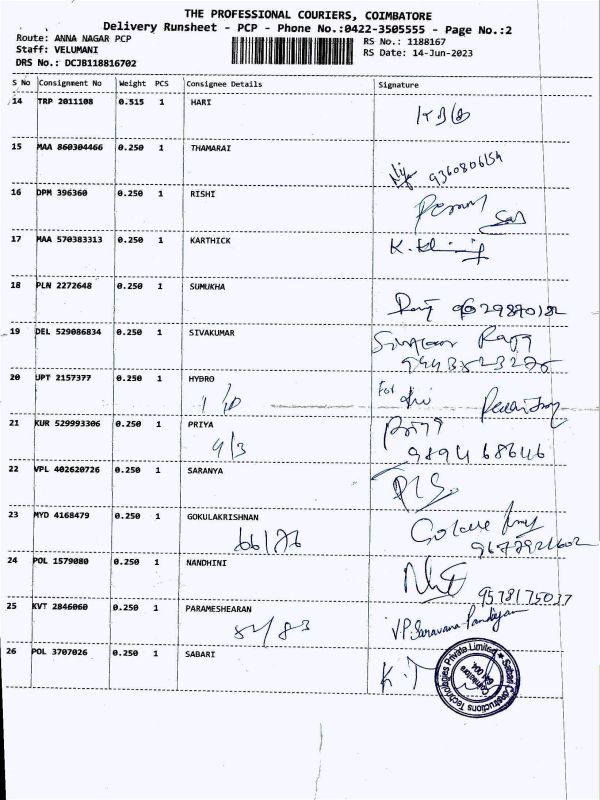 THE PROFESSIONAL COURIERS, COIMBATORE
Delivery Runsheet - PCP - Phone No.:0422-3505555 - Page No.:2
Route: ANNA NAGAR PCP
Staff: VELUMANI
DRS No.: DCJB118816702
RS No.: 1188167
RS Date: 14-Jun-2023
S No Consignment No Weight PCS Consignee Details Signature
14 TRP 2011108 0.515 1 HARI
15 MAA 860304466 0.250 1 THAMARAI
9360806154
16 DPM 396360 0.250 1 RISHI
17 MAA 570383313 0.250 1 KARTHICK
18 PLN 2272648 0.250 1 SUMUKHA
19 DEL 529086834 0.250 1 SIVAKUMAR
20 UPT 2157377 0.250 1 HYDRO
For
21 KUR 529993306 0.250 1 PRIYA
9/3 9894 68646
22 VPL 402620726 0.250 1 SARANYA
23 MYD 4168479 0.250 1 GOKULAKRISHNAN
66/76
24 POL 1579080 0.250 1 NANDHINI
25 KVT 2846060 0.250 1 PARAMESHEARAN
V.P. Saravana Pandiyan
26 POL 3707026 0.250 1 SABARI
Sabari Constructions Technologies Private Limited
Coimbatore